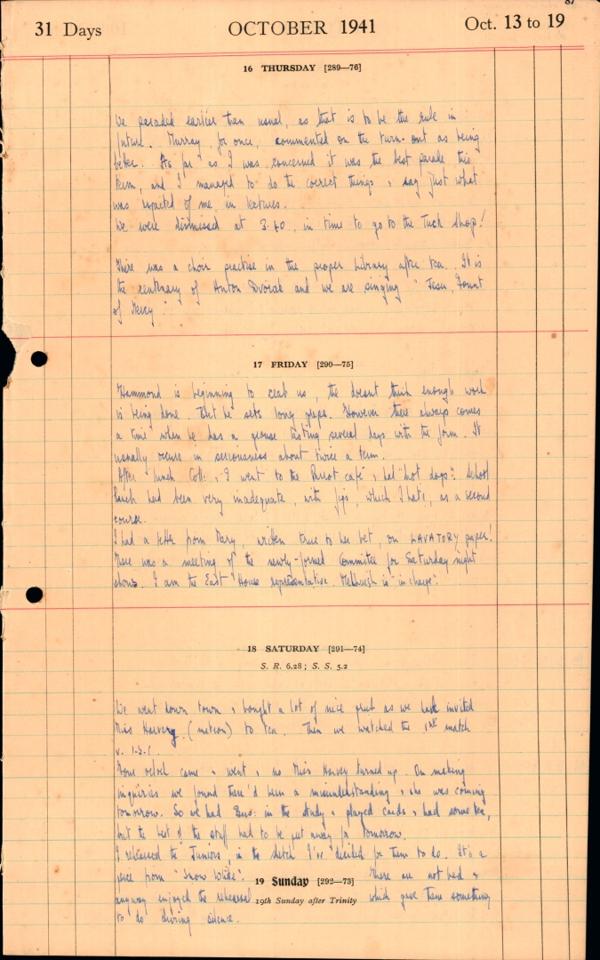 87
31 Days OCTOBER 1941 Oct. 13 to 19
16 THURSDAY [289—76]
We paraded earlier than usual, as that is to be the rule in
future. Murray, for once, commented on the turn-out as being
better. As far as I was concerned it was the best parade this
term, and I managed to do the correct things & say just what
was expected of me in lectures.
We were dismissed at 3.40, in time to go to the Tuck Shop!
There was a choir practise in the proper Library after tea. It is
the centenary of Anton Dvorak and we are singing "Jesu, Fount
of Mercy".
17 FRIDAY [290—75]
Hammond is beginning to us, & he doesnt think enough work
is being done. That he sets long preps. However there always comes
a time when he has a grouse lasting several days with the form. It
usually occurs in seriousness about twice a term.
After lunch & I went to the Parrot café & had "hot dogs". School
lunch had been very inadequate, with figs, which I hate, as a second
course.
I had a letter from Mary, written true to her bet, on LAVATORY paper!
There was a meeting of the newly-formed Committee for Saturday night
shows. I am the East House representative. is "in charge".
18 SATURDAY [291—74]
S. R. 6.28; S. S. 5.2
We went down town & bought a lot of nice grub as we had invited
Miss Harvey (matron) to tea. Then we watched the 1st match
v.
came & went, & no Miss Harvey turned up. On making
inquiries we found there'd been a misunderstanding & she was coming
tomorrow. So we had in the study & played cards & had some tea,
but the best of the stuff had to be put away for tomorrow.
I rehearsed the Juniors in the sketch I've decided for them to do. It's a
piece from "Snow White". There are not bad &
19 Sunday [292—73]
anyway enjoyed the rehearsal which gave them something
19th Sunday after Trinity
to do during silence.